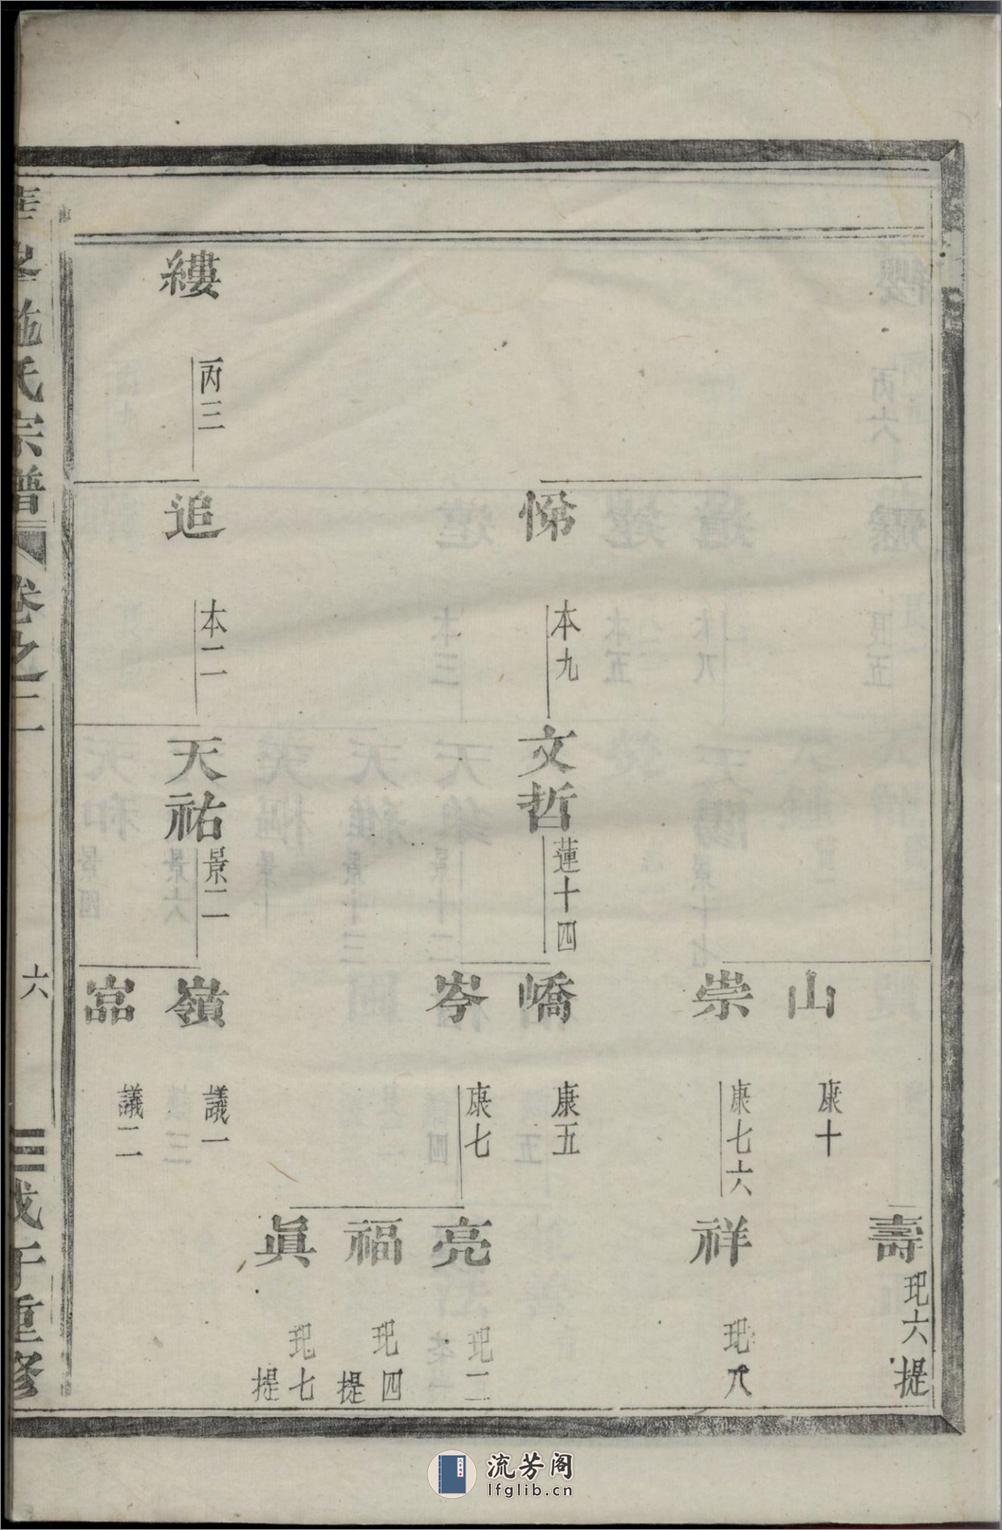 壽
玘六
提
山
康十
崇
康七六
祥
玘八
悌
本九
文哲
蓮十四
嶠
康五
岑
康七
亮
玘二
福
玘四
提
眞
玘七
提
縷
丙三
追
本二
天祐
景二
嶺
議一
富
議二
施氏宗譜
卷之二
六
戊午重修
流芳阁
lfglib.cn